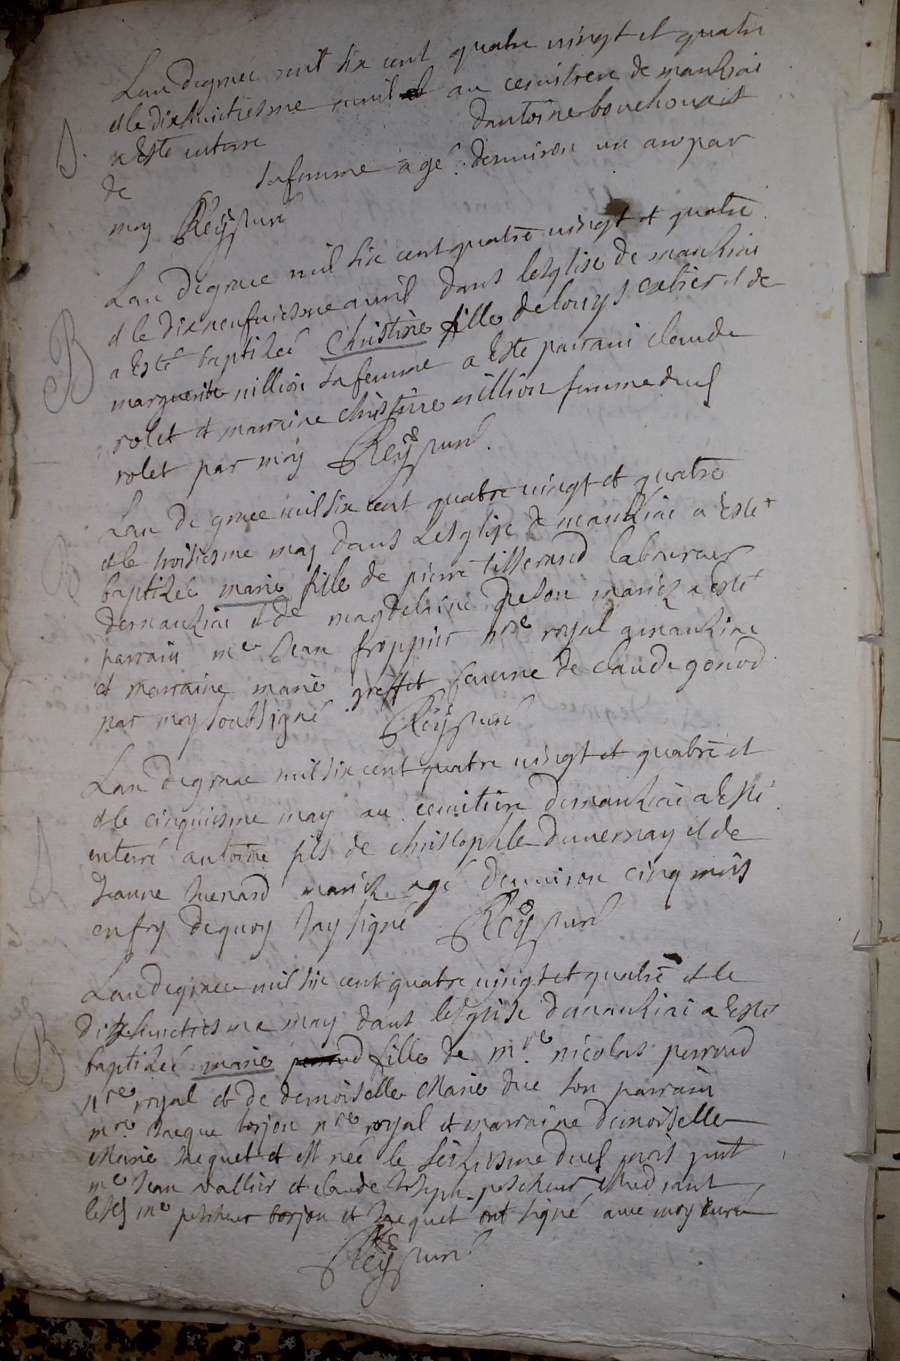 Lan de grace mil six cent quatre vingt et quatre
et le dixhuitiesme avril au cemitiere de manziai
S. a esté enterre dantoine bouchoux et
de sa femme agé denviron un an par
moy Rey curé
Lan de grace mil six cent quatre vingt et quatre
et le dixneufviesme avril dans leglise de manziai
B a esté baptizée Christine fille de louys et de
marguerite million sa femme a esté parrain claude
rolet et marraine christine million femme dud
rolet par moy Rey curé
Lan de grace mil six cent quatre vingt et quatre
et le troisiesme may dans Lesglise de manziai a esté
B baptizée marie fille de pierre tisserand laboureur
de manziai et de magdelaine mariez a esté
parrain me Jean froppier nre royal a manziai
et marraine marie greffet femme de claude gonod
par moy soubsigné Rey curé
Lan de grace mil six cent quatre vingt et quatre et
et le cinquiesme may au cemitiere de manziai a esté
enterré antoine fils de christophle duvernay et de
Jeanne mariez agé denviron cinq mois
en foy dequoy Jay signé Rey curé
Lan de grace mil six cent quatre vingt et quatre et le
dixhuictiesme may dans leglise de manziai a esté
B baptizée marie fille de mre nicolas perroud
nre royal et de demoiselle Marie duc son parrain
mre Jaque borjon nre royal et marraine demoiselle
Marie Jaquet et est née le seiziesme dud mois
me Jean vallier et claude Joseph pescheur
lesd me pescheur borjon et Jaquet ont signé avec moy curé
Rey curé